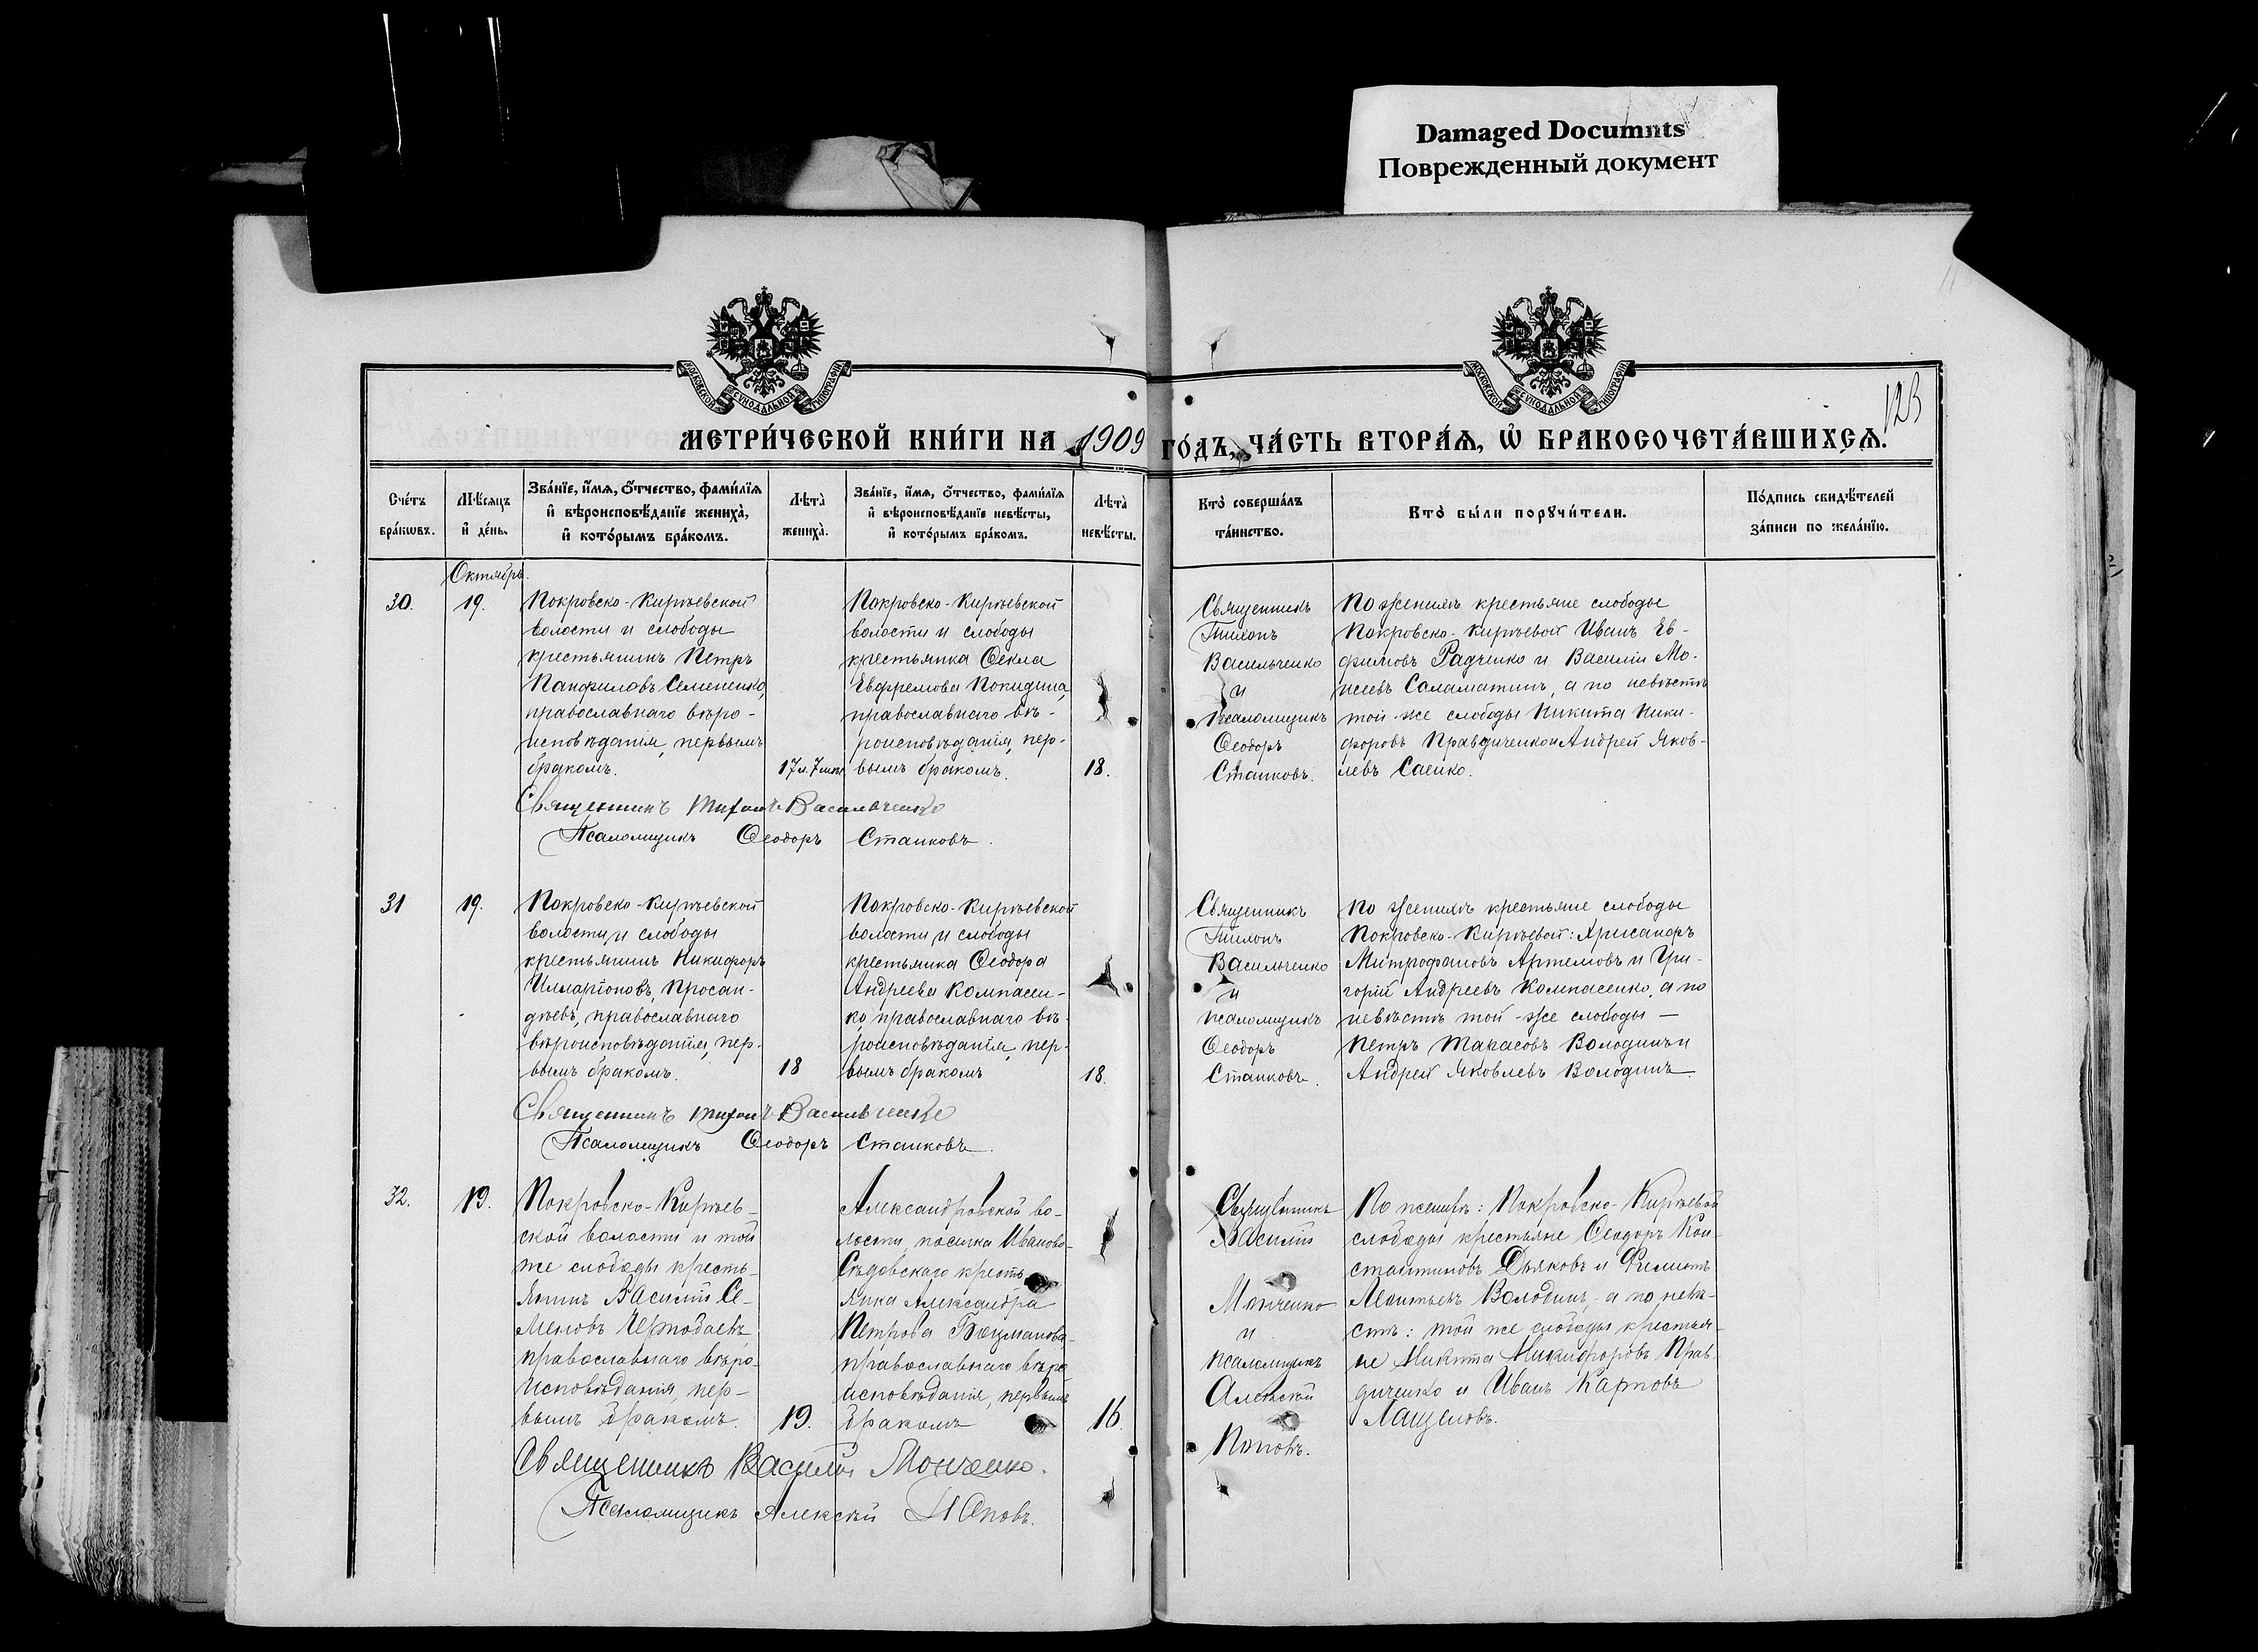 Damaged Documnts
Поврежденный документ
МОСКОВСКОЙ СѴНОДАЛЬНОЙ ТИПОГРАФІИ
МОСКОВСКОЙ СѴНОДАЛЬНОЙ ТИПОГРАФІИ
123
МЕТРИ́ЧЕСКОЙ КНИ́ГИ НА 1909 ГО́ДЪ, ЧА́СТЬ ВТОРА́Ѧ, Ѡ҆ БРАКОСОЧЕТА́ВШИХСѦ.
Сче́тъ бра́кѡвъ.
Мѣ́сяцъ и҆ де́нь.
Зва́нїе, и҆́мѧ, ѻ҆́тчество, фами́лїѧ
и҆ вѣроисповѣ́данїе жениха̀,
и҆ кото́рымъ бра́комъ.
Лѣта̀ жениха̀.
Зва́нїе, и҆́мѧ, ѻ҆́тчество, фами́лїѧ
и҆ вѣроисповѣ́данїе невѣ́сты,
и҆ кото́рымъ бра́комъ.
Лѣта̀ невѣ́сты.
Кто̀ соверша́лъ та́инство.
Кто̀ бы́ли порꙋчи́тели.
По́дпись свидѣ́телей за́писи по жела́нїю.
Октябрь.
30.
19.
Покровско-Кирѣевской
волости и слободы
крестьянинъ Петръ
Панфиловъ Семененко,
православнаго вѣро-
исповѣданія, первымъ
бракомъ.
17 л. 7 мѣс.
Покровско-Кирѣевской
волости и слободы
крестьянка Ѳекла
Евфремова Покидина,
православнаго вѣ-
роисповѣданія, пер-
вымъ бракомъ.
18.
Священникъ
Тихонъ
Васильченко
и
Псаломщикъ
Ѳеодоръ
Станковъ.
По женихѣ крестьяне слободы
Покровско-Кирѣевой Иванъ Ев-
фимовъ Радченко и Василій Мо-
исеевъ Саламатинъ, а по невѣстѣ
той-же слободы Никита Ники-
форовъ Правдиченко и Андрей Яков-
левъ Саенко.
Священникъ Тихонъ Васильченко
Псаломщикъ Ѳеодоръ Станковъ.
31
19.
Покровско-Кирѣевской
волости и слободы
крестьянинъ Никифоръ
Илларіоновъ, Просан-
дѣевъ, православнаго
вѣроисповѣданія, пер-
вымъ бракомъ.
18
Покровско-Кирѣевской
волости и слободы
крестьянка Ѳеодора
Андреева Компасен-
ко, православнаго вѣ-
роисповѣданія, пер-
вымъ бракомъ
18.
Священникъ
Тихонъ
Васильченко
и
псаломщикъ
Ѳеодоръ
Станковъ.
По женихѣ крестьяне слободы
Покровско-Кирѣевой: Хрисанфъ
Митрофановъ Артемовъ и Гри-
горій Андреевъ Компасенко, а по
невѣстѣ той-же слободы —
Петръ Тарасовъ Володинъ и
Андрей Яковлевъ Володинъ.
Священникъ Тихонъ Васильченко
Псаломщикъ Ѳеодоръ Станковъ.
32.
19.
Покровско-Кирѣев-
ской волости и той
же слободы кресть-
янинъ Василій Се-
меновъ Чертодаевъ
православнаго вѣро-
исповѣданія, пер-
вымъ бракомъ.
19.
Александровской во-
лости, поселка Иваново-
Сѣдовскаго кресть-
янка Александра
Петрова Бацманова,
православнаго вѣро
исповѣданія, первымъ
бракомъ
16.
Священникъ
Василій
Монченко
и
псаломщикъ
Алексѣй
Поповъ.
По женихѣ: Покровско-Кирѣевой
слободы крестьяне Ѳеодоръ Кон-
стантиновъ Дьяковъ и Филиппъ
Леонтьевъ Володинъ, а по невѣ-
стѣ: той же слободы крестья-
не Никита Никифоровъ Прав-
диченко и Иванъ Карповъ
Лащеновъ.
Священникъ Василій Монченко.
Псаломщикъ Алексѣй Поповъ.